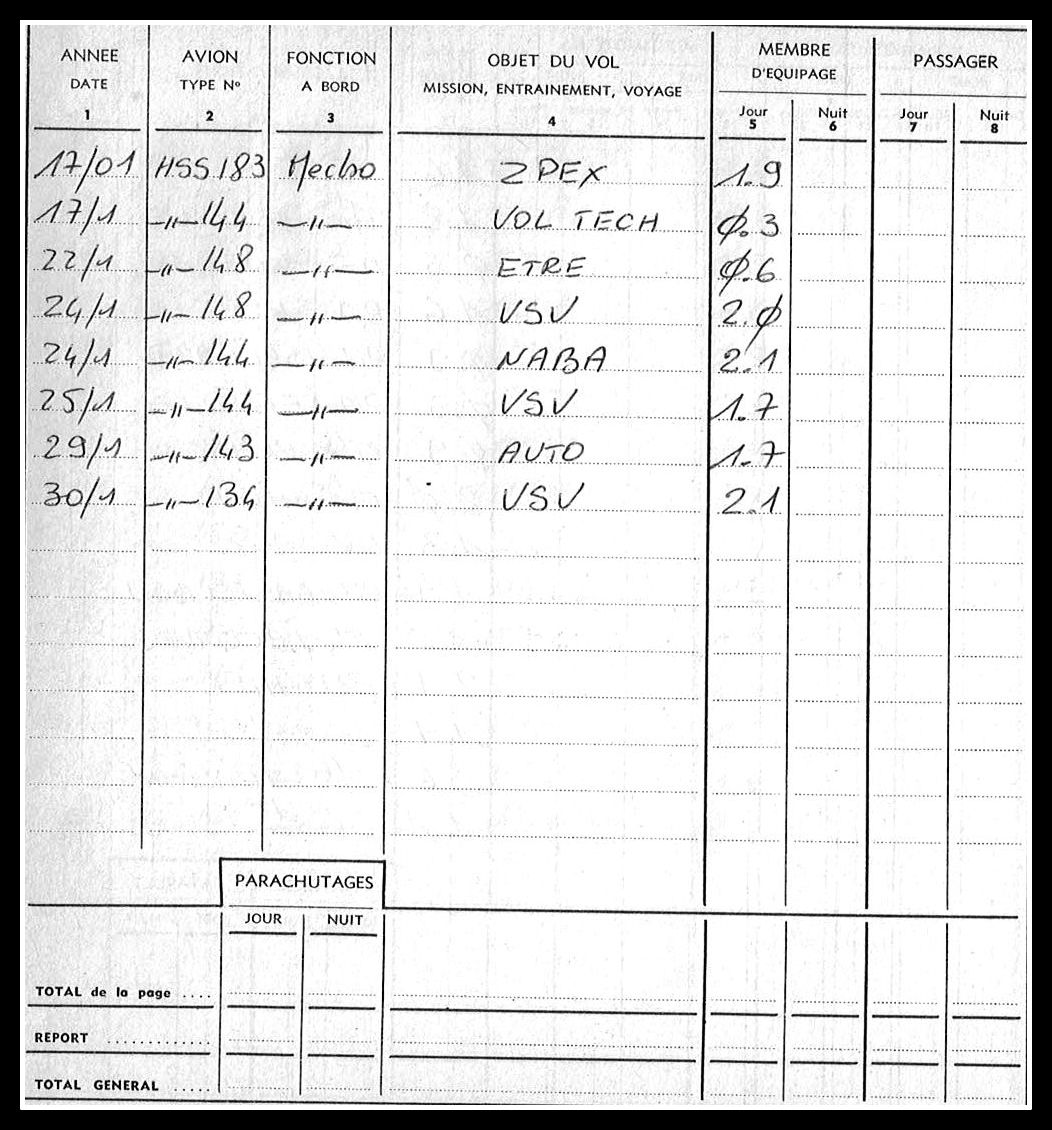 ANNEE AVION FONCTION OBJET DU VOL MEMBRE PASSAGER
DATE TYPE Nº A BORD MISSION, ENTRAINEMENT, VOYAGE D'EQUIPAGE
Jour Nuit Jour Nuit
1 2 3 4 5 6 7 8
17/01 HSS 183 Mecbo 2 PEX 1.9
17/1 —"— 144 —"— VOL TECH Ø.3
22/1 —"— 148 —"— ETRE Ø.6
24/1 —"— 148 —"— VSV 2.Ø
24/1 —"— 144 —"— NABA 2.1
25/1 —"— 144 —"— VSV 1.7
29/1 —"— 143 —"— AUTO 1.7
30/1 —"— 134 —"— VSV 2.1
PARACHUTAGES
JOUR NUIT
TOTAL de la page ....
REPORT ............
TOTAL GENERAL .....